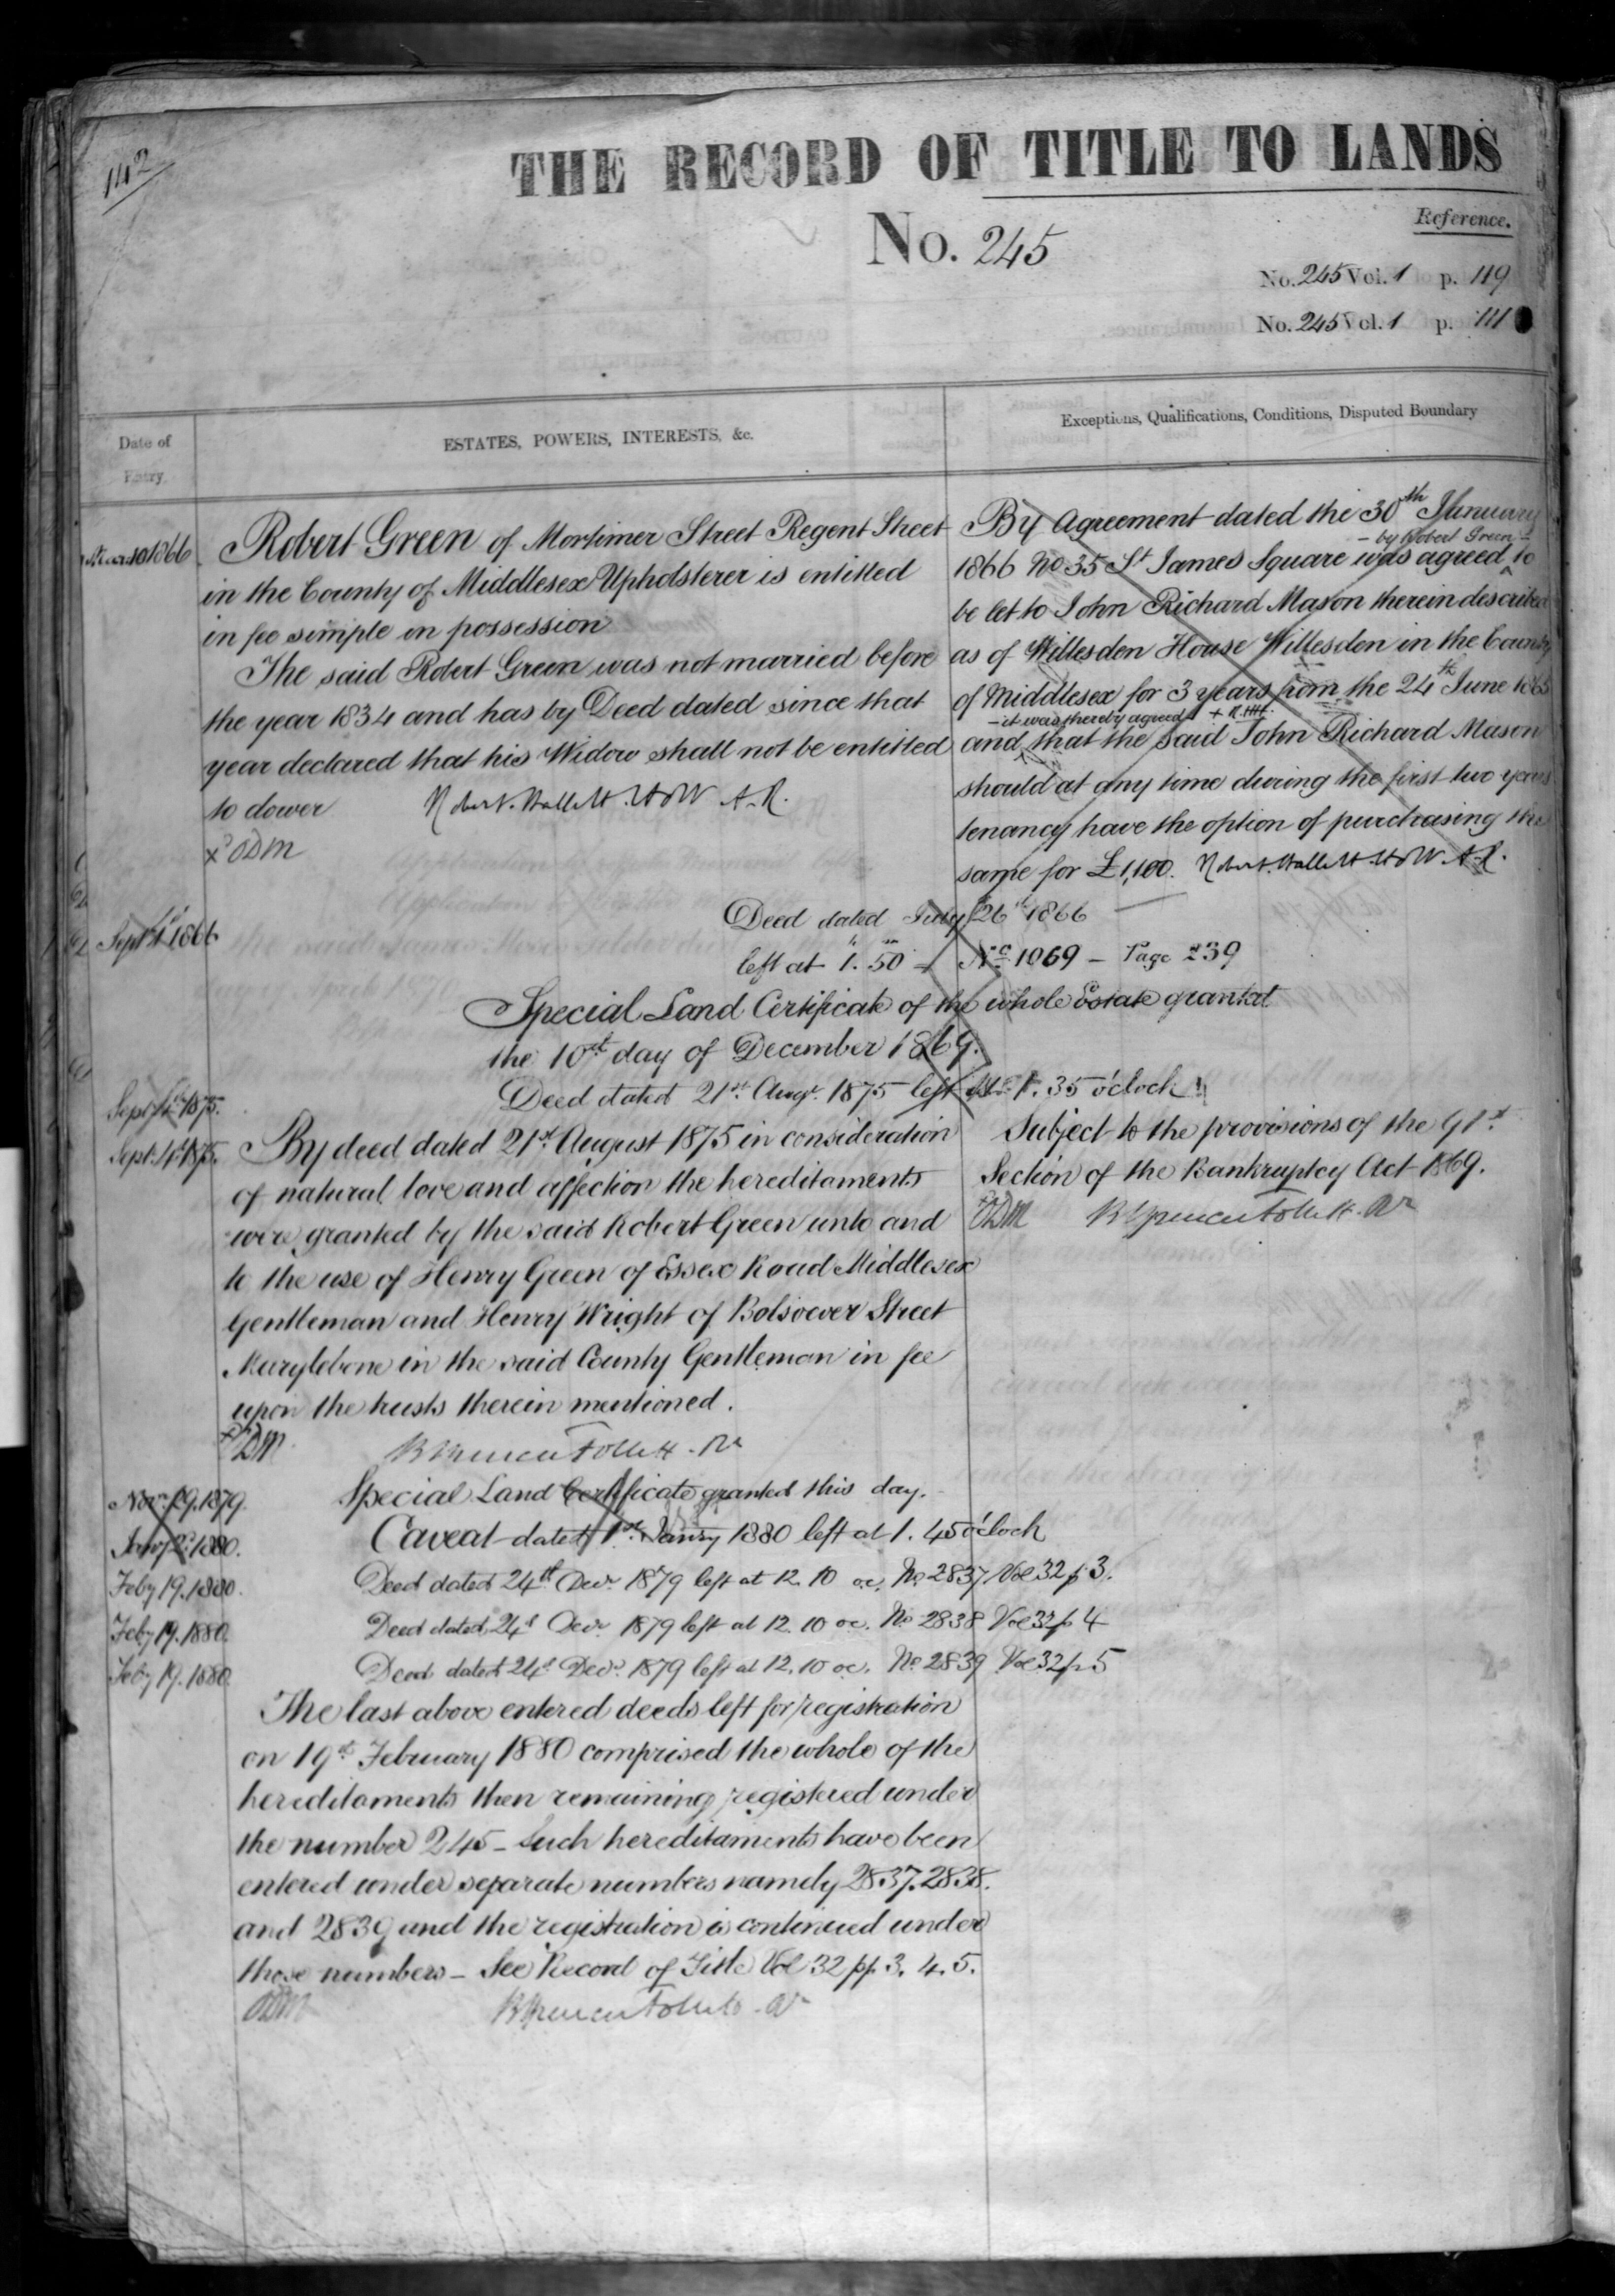 142
THE RECORD OF TITLE TO LANDS
No. 245
Reference.
No. 245 Vol. 1 p. 119
No. 245 Vol. 1 p. 111
Date of
Entry
ESTATES, POWERS, INTERESTS, &c.
Exceptions, Qualifications, Conditions, Disputed Boundary
1866
Robert Green of Mortimer Street Regent Street
in the County of Middlesex Upholsterer is entitled
in fee simple in possession
The said Robert Green was not married before
the year 1834 and has by Deed dated since that
year declared that his Widow shall not be entitled
to dower Robert. Hallett. H&W A.R.
x ODM
By Agreement dated the 30th January
- by Robert Green -
1866 No 35 St James Square was agreed to
be let to John Richard Mason therein described
as of Willesden House Willesden in the County
of Middlesex for 3 years from the 24th June 1865
- it was thereby agreed +
and that the said John Richard Mason
should at any time during the first two years
tenancy have the option of purchasing the
same for £1,100. Robert. Hallett. H&W. A.R.
Sept 1st 1866
Deed dated July 26th 1866
left at 1. 50 No 1069 - Page 239
Special Land Certificate of the whole Estate granted
the 10th day of December 1869.
Sept 4th 1875.
Deed dated 21st Augt. 1875 left at 1. 35 o'clock
Sept. 4th 1875.
By deed dated 21st August 1875 in consideration
of natural love and affection the hereditaments
were granted by the said Robert Green unto and
to the use of Henry Green of Essex Road Middlesex
Gentleman and Henry Wright of Bolsover Street
Marylebone in the said County Gentleman in fee
upon the trusts therein mentioned.
x ODM B Spencer Follett. Rr
Subject to the provisions of the 91st
Section of the Bankruptcy Act 1869.
ODM B Spencer Follett. Rr
Novr. 29. 1879.
Special Land Certificate granted this day.
Jany 2d. 1880.
Caveat dated 1st. Janry 1880 left at 1. 45 o'clock
Feby 19. 1880.
Deed dated 24th Decr. 1879 left at 12. 10 oc. No. 2837 Vol 32 p 3.
Feby 19. 1880.
Deed dated 24th Decr. 1879 left at 12. 10 oc. No. 2838 Vol 32 p 4
Feby 19. 1880.
Deed dated 24th Decr. 1879 left at 12. 10 oc. No. 2839 Vol 32 p 5
The last above entered deeds left for registration
on 19th February 1880 comprised the whole of the
hereditaments then remaining registered under
the number 245 - Such hereditaments have been
entered under separate numbers namely 2837. 2838.
and 2839 and the registration is continued under
those numbers - See Record of Title Vol 32 pp. 3. 4. 5.
ODM B Spencer Follett. Rr